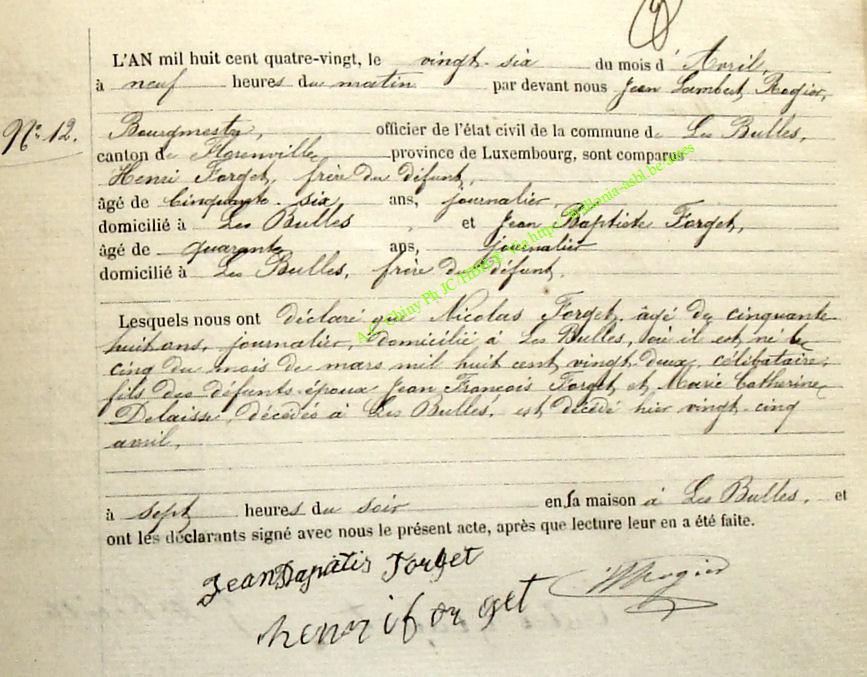 L'AN mil huit cent quatre-vingt, le vingt-six du mois d'Avril,
à neuf heures du matin par devant nous Jean Lambert Rogier,
N° 12.
Bourgmestre, officier de l'état civil de la commune de Les Bulles,
canton de Florenville province de Luxembourg, sont comparus
Henri Forget, frère du défunt,
âgé de Cinquante-six ans, journalier,
domicilié à Les Bulles, et Jean Baptiste Forget,
âgé de quarante ans, journalier
domicilié à Les Bulles, frère du défunt.
Lesquels nous ont déclaré que Nicolas Forget, âgé de cinquante
huit ans, journalier, domicilié à Les Bulles, où il est né le
cinq du mois de mars mil huit cent vingt-deux, célibataire,
fils des défunts époux Jean François Forget et Marie Catherine
Delaisse, décédés à Les Bulles, est décédé hier vingt-cinq
avril,
à sept heures du soir en sa maison à Les Bulles, et
ont les déclarants signé avec nous le présent acte, après que lecture leur en a été faite.
Jean Bapatis Forget
henri forget
Rogier